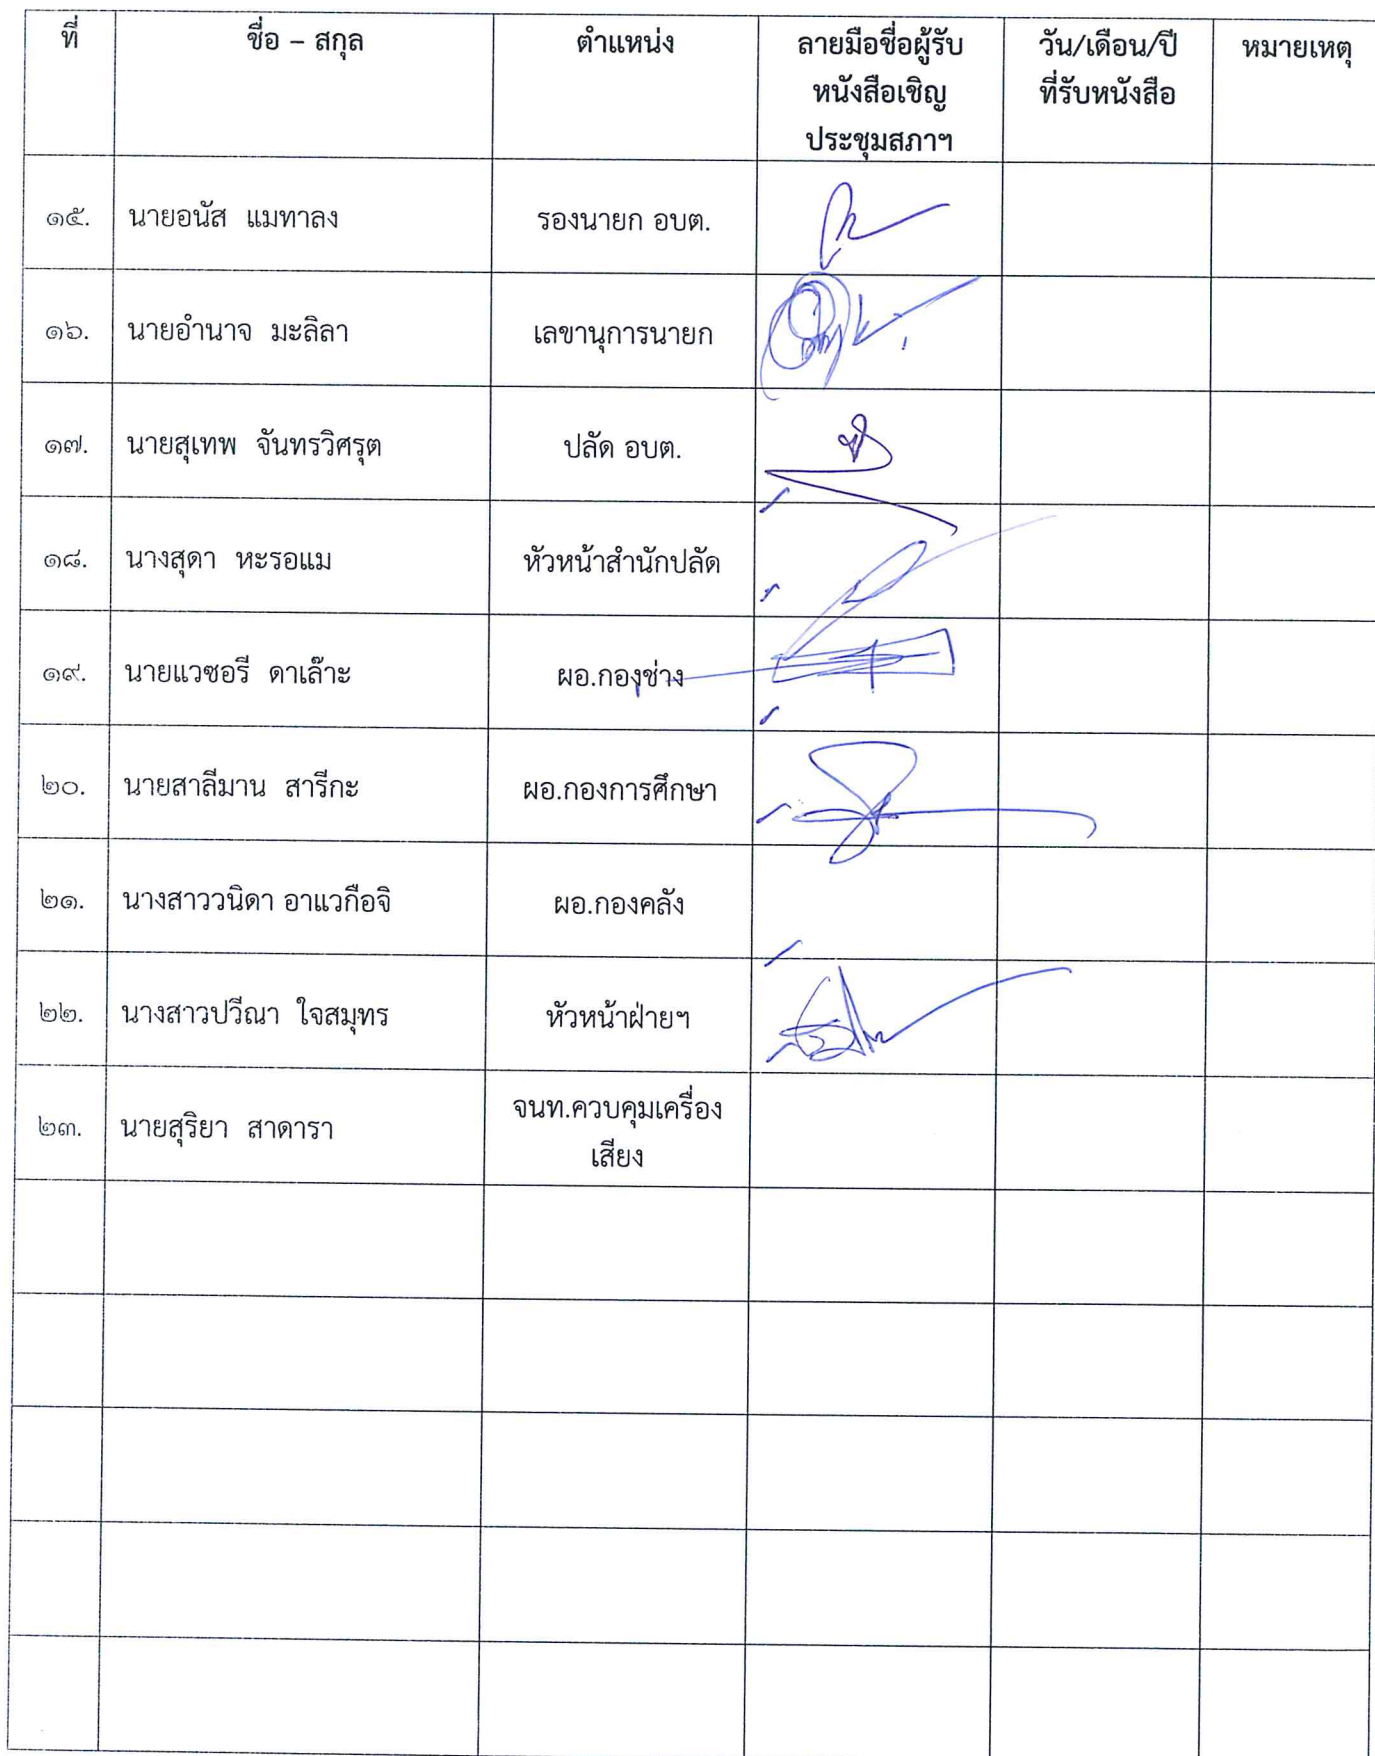 ที่ ชื่อ – สกุล ตำแหน่ง ลายมือชื่อผู้รับ วัน/เดือน/ปี หมายเหตุ
หนังสือเชิญ ที่รับหนังสือ
ประชุมสภาฯ
๑๕. นายอนัส แมทาลง รองนายก อบต.
๑๖. นายอำนาจ มะลิลา เลขานุการนายก
๑๗. นายสุเทพ จันทรวิศรุต ปลัด อบต.
๑๘. นางสุดา หะรอแม หัวหน้าสำนักปลัด
๑๙. นายแวซอรี ดาเล๊าะ ผอ.กองช่าง
๒๐. นายสาลีมาน สารีกะ ผอ.กองการศึกษา
๒๑. นางสาววนิดา อาแวกือจิ ผอ.กองคลัง
๒๒. นางสาวปวีณา ใจสมุทร หัวหน้าฝ่ายฯ
๒๓. นายสุริยา สาดารา จนท.ควบคุมเครื่อง
เสียง